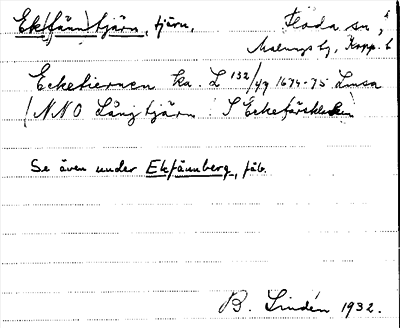 Ek(fänn)tjärn, tjärn. Floda sn,
Malungs tg, Kopp. l
Ecketiernen ka. L 132/49 1674-75 Lmsa
/ N N O Långtjärn
Se även under Ekfännberg, fäb.
B. Lindén 1932.